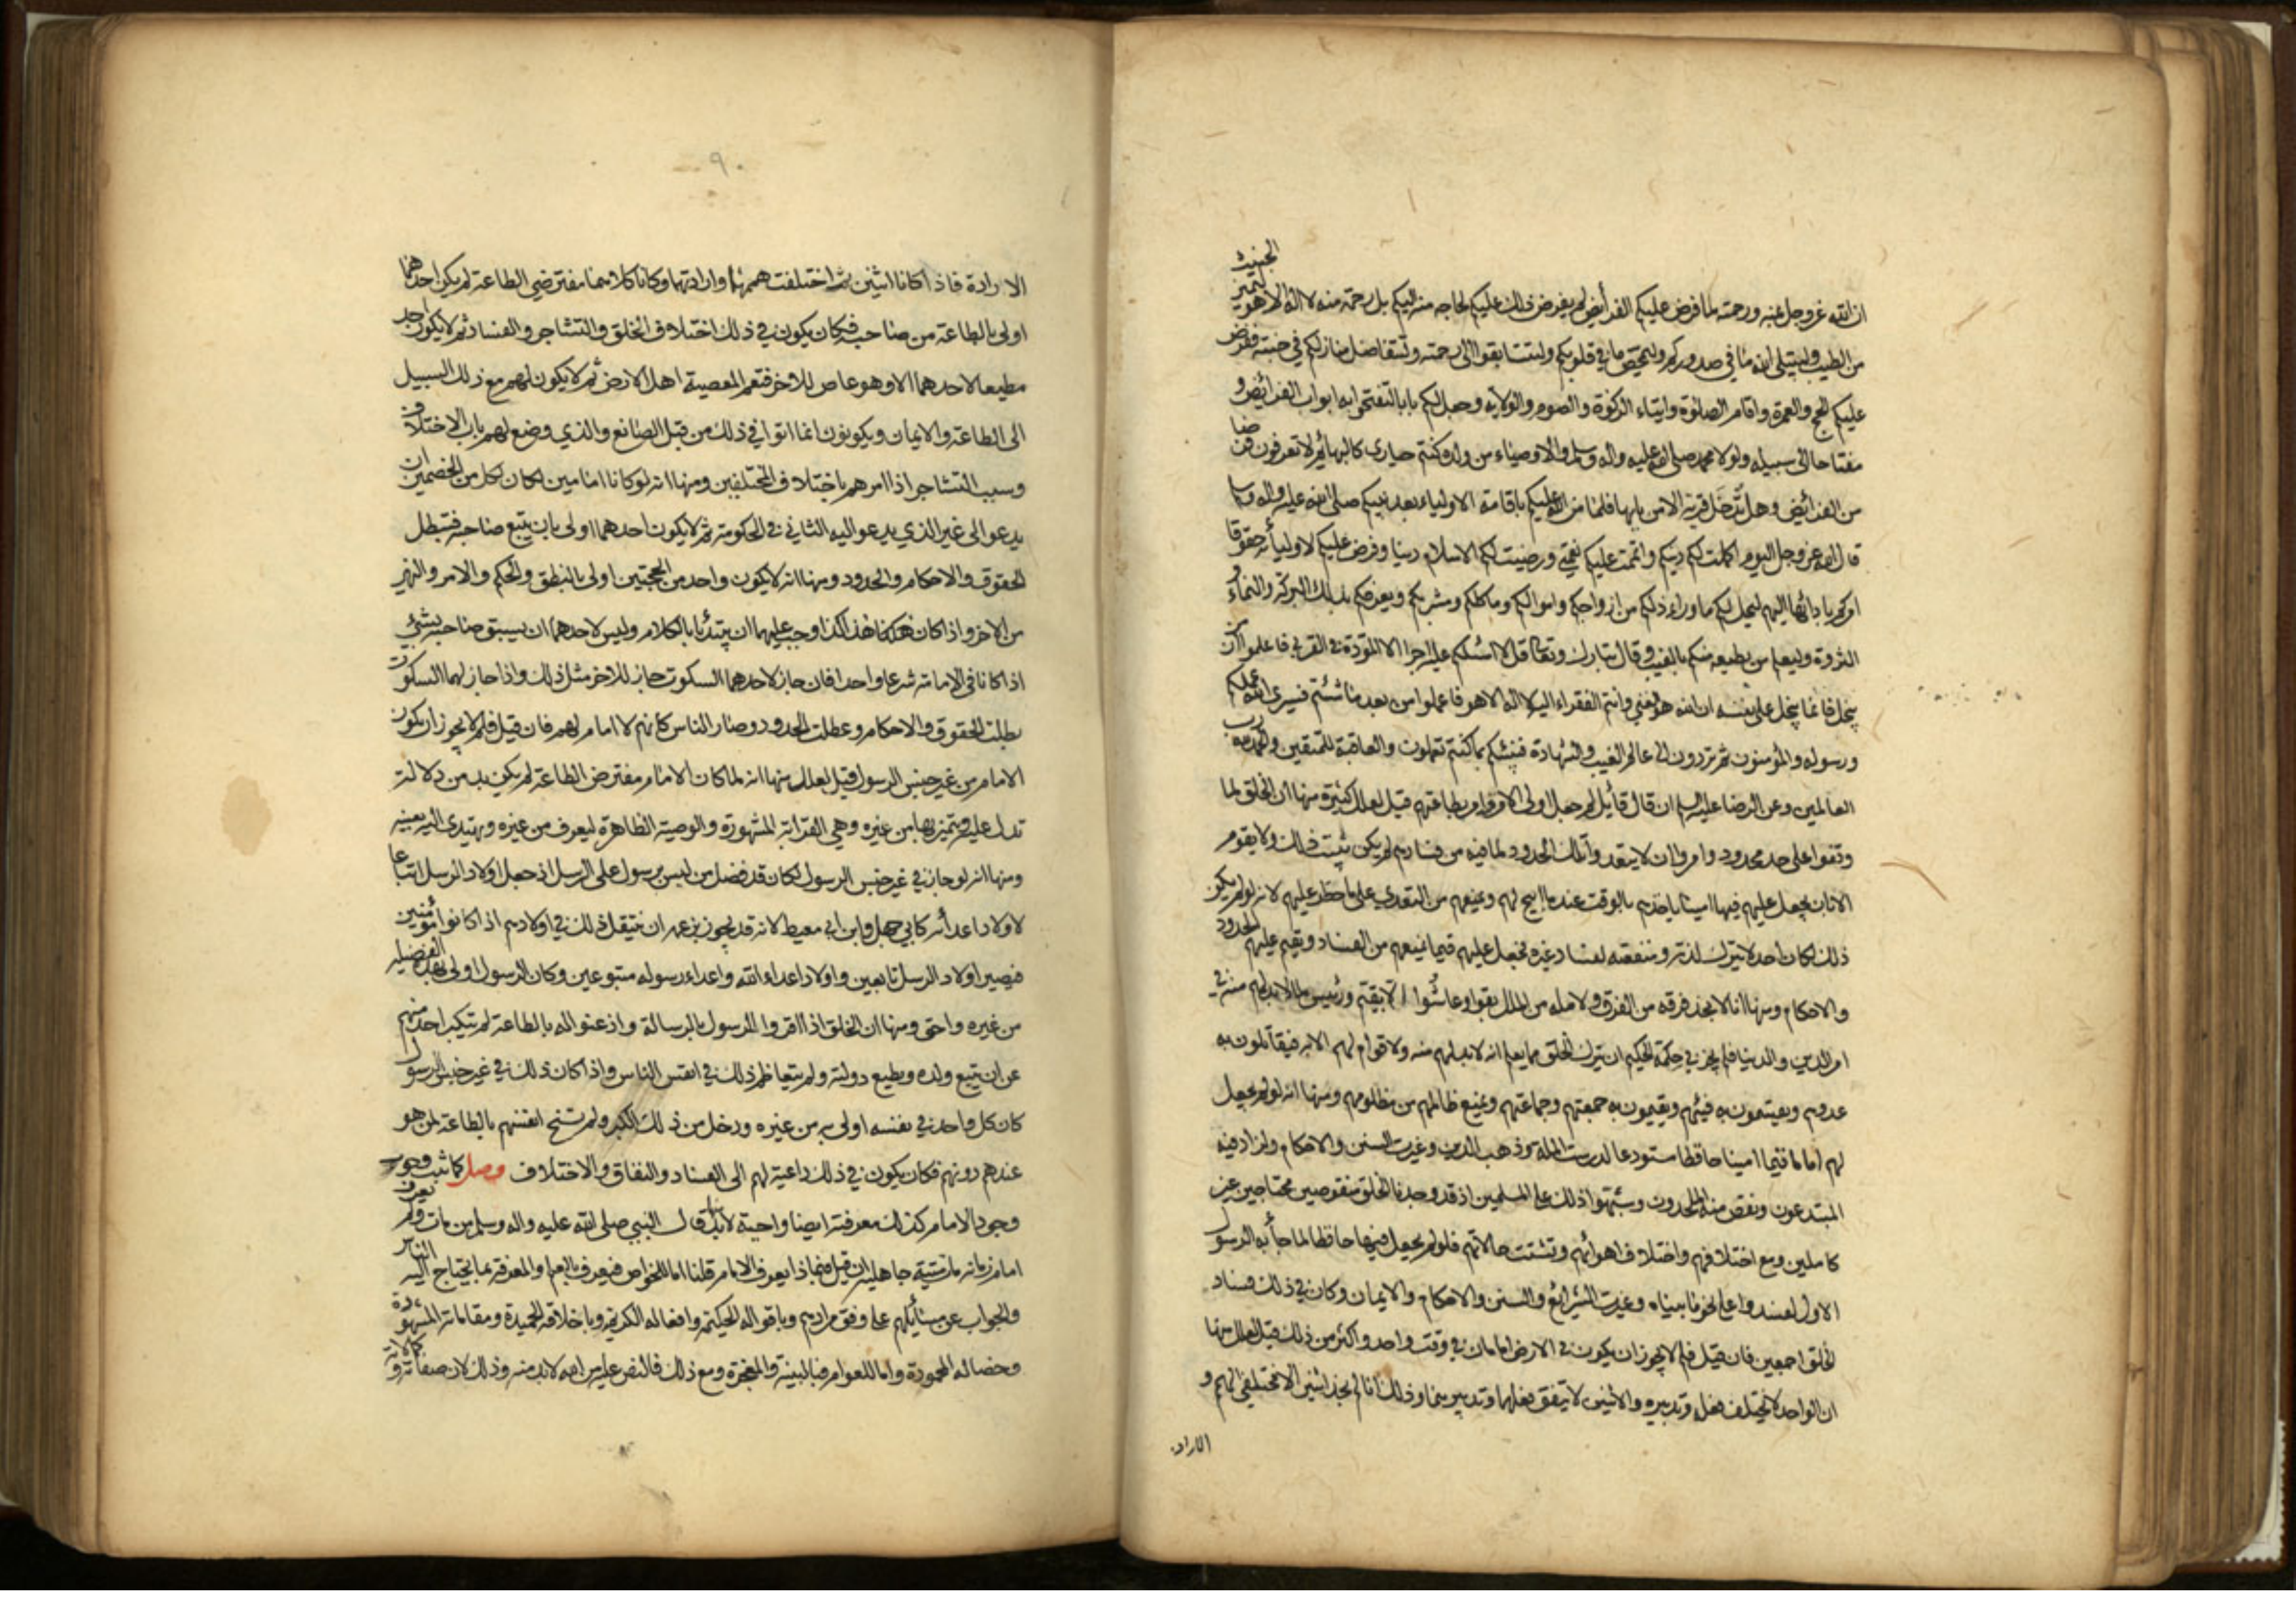 ان الله عز وجل بمنه ورحمته لما فرض عليكم الفرائض لم يفرض ذلك عليكم لحاجه منه اليكم بل رحمة منه لا اله الا هو ليميز الخبيث
من الطيب وليبتلي الله ما في صدوركم وليمحص ما في قلوبكم ولتتسابقوا الى رحمته ولتتفاضل منازلكم في جنته ففرض
عليكم الحج والعمرة واقام الصلوة وايتاء الزكوة والصوم والولاية وجعل لكم بابا لتفتحوا به ابواب الفرائض و
مفتاحا الى سبيله ولولا محمد صلى الله عليه واله وسلم والاوصياء من ولده كنتم حيارى كالبهائم لا تعرفون فرضا
من الفرائض وهل تُدخَل قرية الا من بابها فلما من الله عليكم باقامة الاولياء بعد نبيكم صلى الله عليه واله وسلم
قال الله عز وجل اليوم اكملت لكم دينكم واتممت عليكم نعمتي ورضيت لكم الاسلام دينا وفرض عليكم لاوليائه حقوقا
امركم بادائها اليهم ليحل لكم ما وراء ذلكم من ازواجكم واموالكم وماكلكم ومشربكم ويعرفكم بذلك البركة والنماء و
الثروة وليعلم من يطيعه منكم بالغيب وقال تبارك وتعالى قل لا اسئلكم عليه اجرا الا المودة في القربى فاعلموا ان من
يبخل فانما يبخل على نفسه ان الله هو الغني وانتم الفقراء اليه لا اله الا هو فاعملوا من بعد ما شئتم فسيرى الله عملكم
ورسوله والمؤمنون ثم تردون الى عالم الغيب والشهادة فينبئكم بما كنتم تعملون والعاقبة للمتقين والحمد لله رب
العالمين وعن الرضا عليه السلم ان قال قائل لم جعل اولى الامر وامر بطاعتهم قيل لعلل كثيرة منها ان الخلق لما
وقفوا على حد محدود وامروا ان لا يتعدوا تلك الحدود لما فيه من فسادهم لم يكن يثبت ذلك ولا يقوم
الا بان يجعل عليهم فيها امينا ياخذهم بالوقت عند ما ابيح لهم ويمنعهم من التعدي على ما حظر عليهم لانه لو لم يكن
ذلك لكان احد لا يترك لذته ومنفعته لفساد غيره فجعل عليهم قيما يمنعهم من الفساد ويقيم عليهم الحدود
والاحكام ومنها انا لا نجد فرقه من الفرق ولا ملة من الملل بقوا وعاشوا الا بقيم ورئيس لما لا بد لهم منه في
امر الدين والدنيا فلم يجز في حكمة الحكيم ان يترك الخلق مما يعلم انه لا بد لهم منه ولا قوام لهم الا به فيقاتلون به
عدوهم ويقتسمون به فيئهم ويقيمون به جمعتهم وجماعتهم ويمنع ظالمهم من مظلومهم ومنها انه لو لم يجعل
لهم اماما قيما امينا حافظا مستودعا لدرست الملة وذهب الدين وغيرت السنن والاحكام ولزاد فيه
المبتدعون ونقص منه الملحدون وشبهوا ذلك على المسلمين اذ قد وجدنا الخلق منقوصين محتاجين غير
كاملين ومع اختلافهم واختلاف اهوائهم وتشتت حالاتهم فلو لم يجعل فيها حافظا لما جاء به الرسول
الاول لفسدوا على نحو ما بيناه وغيرت الشرائع والسنن والاحكام والايمان وكان في ذلك فساد
الخلق اجمعين فان قيل فلم لا يجوز ان يكون في الارض امامان في وقت واحد واكثر من ذلك قيل لعلل منها
ان الواحد لا يختلف فعله وتدبيره والاثنين لا يتفق فعلهما وتدبيرهما وذلك انا لم نجد اثنين الا مختلفي الهم و
الارادة
٩٠
الارادة فاذا كانا اثنين ثم اختلفت هممهما وارادتهما وكانا كلاهما مفترضي الطاعة لم يكن احدهما
اولى بالطاعة من صاحبه فكان يكون في ذلك اختلاف الخلق والتشاجر والفساد ثم لا يكون احد
مطيعا لاحدهما الا وهو عاص للاخر فتعم المعصية اهل الارض ثم لا يكون لهم مع ذلك السبيل
الى الطاعة والايمان ويكونون انما اتوا في ذلك من قبل الصانع والذي وضع لهم باب الاختلاف
وسبب التشاجر اذا امرهم باختلاف المختلفين ومنها انه لو كانا امامين لكان لكل من الخصمين ان
يدعو الى غير الذي يدعو اليه الثاني في الحكومة ثم لا يكون احدهما اولى بان يتبع صاحبه فتبطل
الحقوق والاحكام والحدود ومنها انه لا يكون واحد من الحجتين اولى بالنطق والحكم والامر والنهي
من الاخر واذا كان هكذا وجب عليهما ان يبتدئا بالكلام وليس لاحدهما ان يسبق صاحبه بشئ
اذا كانا في الامامة شرعا واحدا فان جاز لاحدهما السكوت جاز للاخر مثل ذلك واذا جاز لهما السكوت
بطلت الحقوق والاحكام وعطلت الحدود وصار الناس كانهم لا امام لهم فان قيل فلم لا يجوز ان يكون
الامام من غير جنس الرسول قيل لعلل منها انه لما كان الامام مفترض الطاعة لم يكن بد من دلالة
تدل عليه ويتميز بها من غيره وهي القرابة المشهورة والوصية الظاهرة ليعرف من غيره ويهتدى اليه بعينه
ومنها انه لو جاز في غير جنس الرسول لكان قد فضل من ليس برسول على الرسل اذ جعل اولاد الرسل اتباعا
لاولاد اعدائه كابي جهل وابن ابي معيط لانه قد يجوز بزعمه ان ينتقل ذلك في اولادهم اذا كانوا مؤمنين
فيصير اولاد الرسل تابعين واولاد اعداء الله واعداء رسوله متبوعين وكان الرسول اولى بهذه الفضيلة
من غيره واحق ومنها ان الخلق اذا اقروا للرسول بالرسالة واذعنوا له بالطاعة لم يتكبر احد منهم
عن ان يتبع ولده ويطيع دولته ولم يتعاظم ذلك في انفس الناس واذا كان ذلك في غير جنس الرسول
كان كل واحد في نفسه اولى به من غيره ودخل من ذلك الكبر ولم تسنح انفسهم بالطاعة لمن هو
عندهم دونهم فكان يكون في ذلك داعية لهم الى الفساد والنفاق والاختلاف وصل كما ثبت وجوب
وجود الامام كذلك معرفته ايضا واجبة قال النبي صلى الله عليه واله وسلم من مات ولم يعرف
امام زمانه مات ميتة جاهلية ان قيل فبماذا يعرف الامام قلنا اما للخواص فيعرف بالعلم والمعرفة بما يحتاج اليه الناس
والجواب عن مسائلهم على وفق مرادهم وباقواله الحكيمة وافعاله الكريمة وباخلاقه الحميدة ومقاماته المشهودة
وخصاله المحمودة واما للعوام فبالبينة والمعجزة ومع ذلك فالنص عليه من الله لا بد منه وذلك لان صفاته و كمالاته